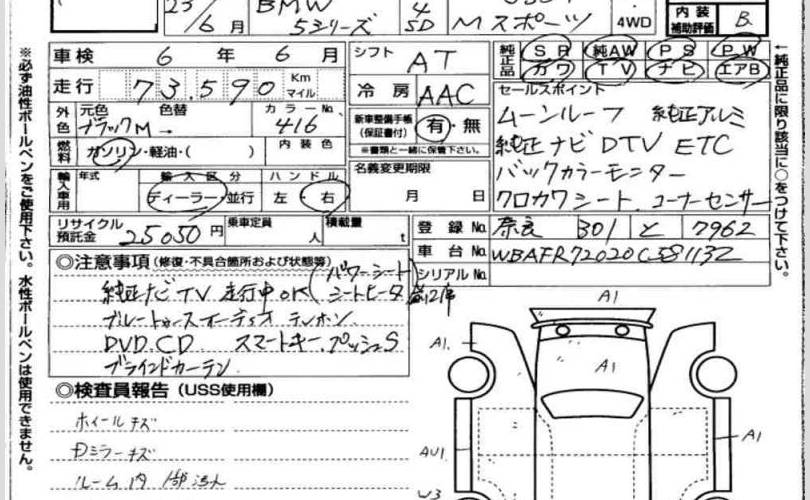 23/6月 BMW 5シリーズ 4 SD Mスポーツ 4WD 内装補助評価 B
車検 6年 6月 シフト AT 純正品 SR 純AW PS PW
カワ TV ナビ エアB
走行 73,590 Km マイル 冷房 AAC セールスポイント
外色 元色 ブラックM 色替 カラーNo. 416 新車整備手帳(保証書付) 有・無 ムーンルーフ 純正アルミ
※書類と一緒に保管下さい。 純正ナビ DTV ETC
燃料 ガソリン・軽油・( ) 内装色 名義変更期限 月 日 バックカラーモニター
輸入車用 年式 輸入区分 ディーラー・並行 ハンドル 左・右 クロカワシート コーナーセンサー
リサイクル預託金 25050円 乗車定員 人 積載量 t 登録No. 奈良 301 と 7962
車台No. WBAFR72020C581132
シリアルNo.
◎注意事項(修復・不具合箇所および状態等)
純正ナビTV走行中OK (パワーシート シートヒータ) 前2席
ブルートゥースオーディオ テレホン
DVD.CD スマートキー.プッシュS
ブラインドカーテン
◎検査員報告(USS使用欄)
ホイールキズ
Dミラーキズ
ルーム内
A1
A1.
A1
AU1
A1
W3
※必ず油性ボールペンをご使用下さい。水性ボールペンは使用できません。
←純正品に限り該当に○をつけて下さい。